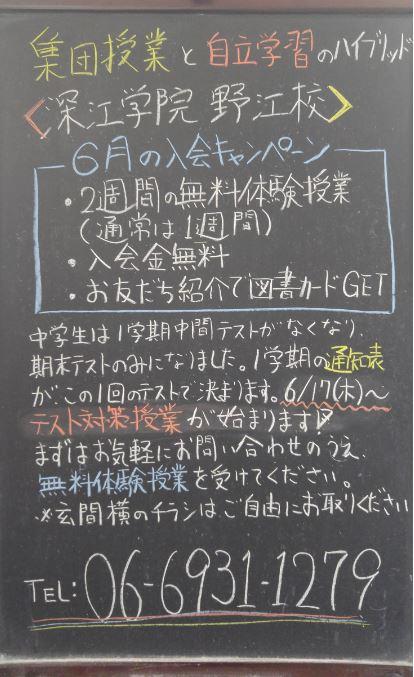 集団授業と自立学習のハイブリッド
<深江学院 野江校>
6月の入会キャンペーン
・2週間の無料体験授業
(通常は1週間)
・入会金無料
・お友だち紹介で図書カードGET
中学生は1学期中間テストがなくなり、
期末テストのみになりました。1学期の通知表
がこの1回のテストで決まります。6/17(木)~
テスト対策授業が始まります
まずはお気軽にお問い合わせのうえ、
無料体験授業を受けてください。
※玄関横のチラシはご自由にお取りください
TEL: 06-6931-1279